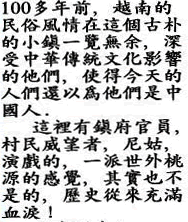 100多年前，越南的
民俗風情在這個古朴
的小鎮一覽無余，深
受中華傳統文化影響
的他們，使得今天的
人們還以為他們是中
國人．
這裡有鎮府官員，
村民威望者，尼姑，
演戲的，一派世外桃
源的感覺，其實也不
是的，歷史從來充滿
血淚！